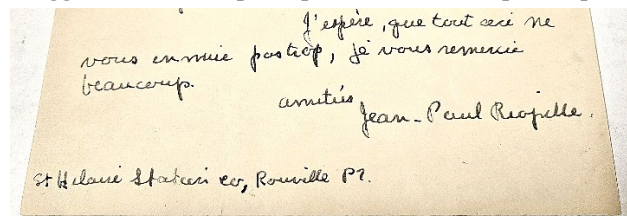 J'espère, que tout ceci ne
vous ennuie pas trop, je vous remercie
beaucoup.
amitiés
Jean-Paul Riopelle.
St Hilaire Station co, Rouville P2.